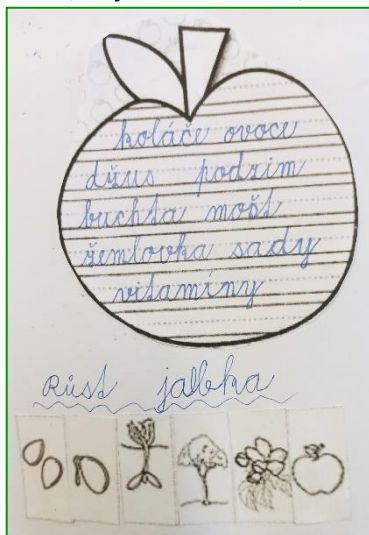 koláče ovoce
džus podzim
buchta mošt
žemlovka sady
vitamíny
Růst jalbka